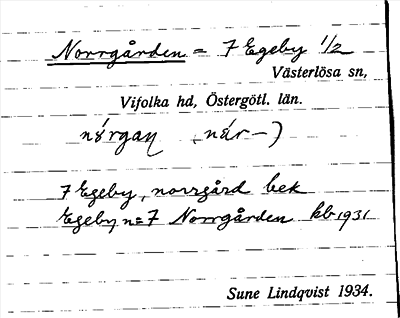 Norrgården = 7 Egeby 1/2
Västerlösa sn,
Vifolka hd, Östergötl. län.
nórgaŋ (nár-)
7 Egeby, norrgård bek
Egeby n=7 Norrgården kb 1931
Sune Lindqvist 1934.